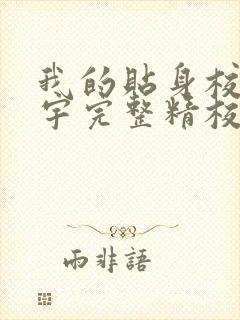 我的貼身校
宇完整精校
雨非語